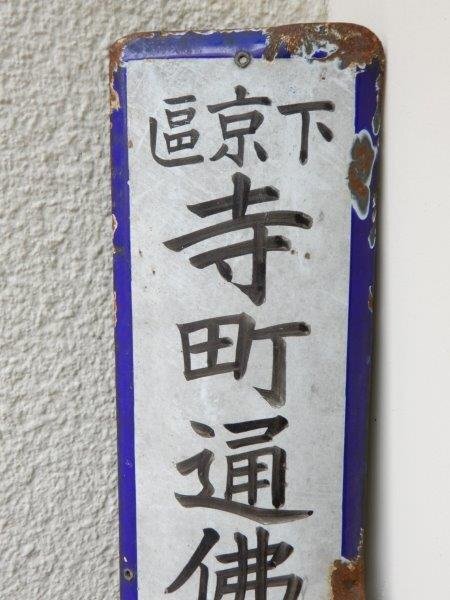 下京區
寺町通佛